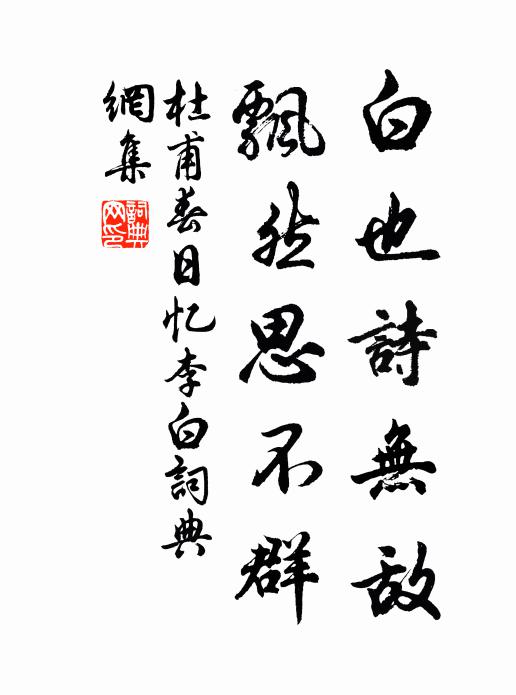 白也詩無敵
飄然思不群
杜甫春日忆李白詞典
網集
詞典
网印